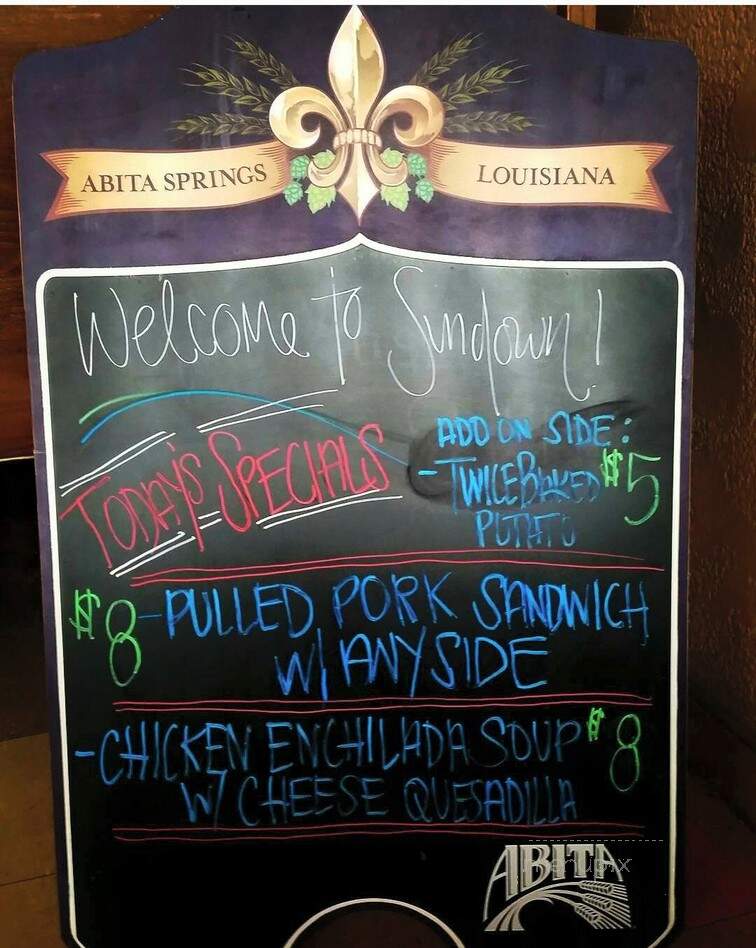 ABITA SPRINGS
LOUISIANA
Welcome to Sundown!
TODAY'S SPECIALS
ADD ON SIDE:
- TWICE BAKED $5
POTATO
$8 - PULLED PORK SANDWICH
W/ ANY SIDE
- CHICKEN ENCHILADA SOUP $8
W/ CHEESE QUESADILLA
ABITA
menupix